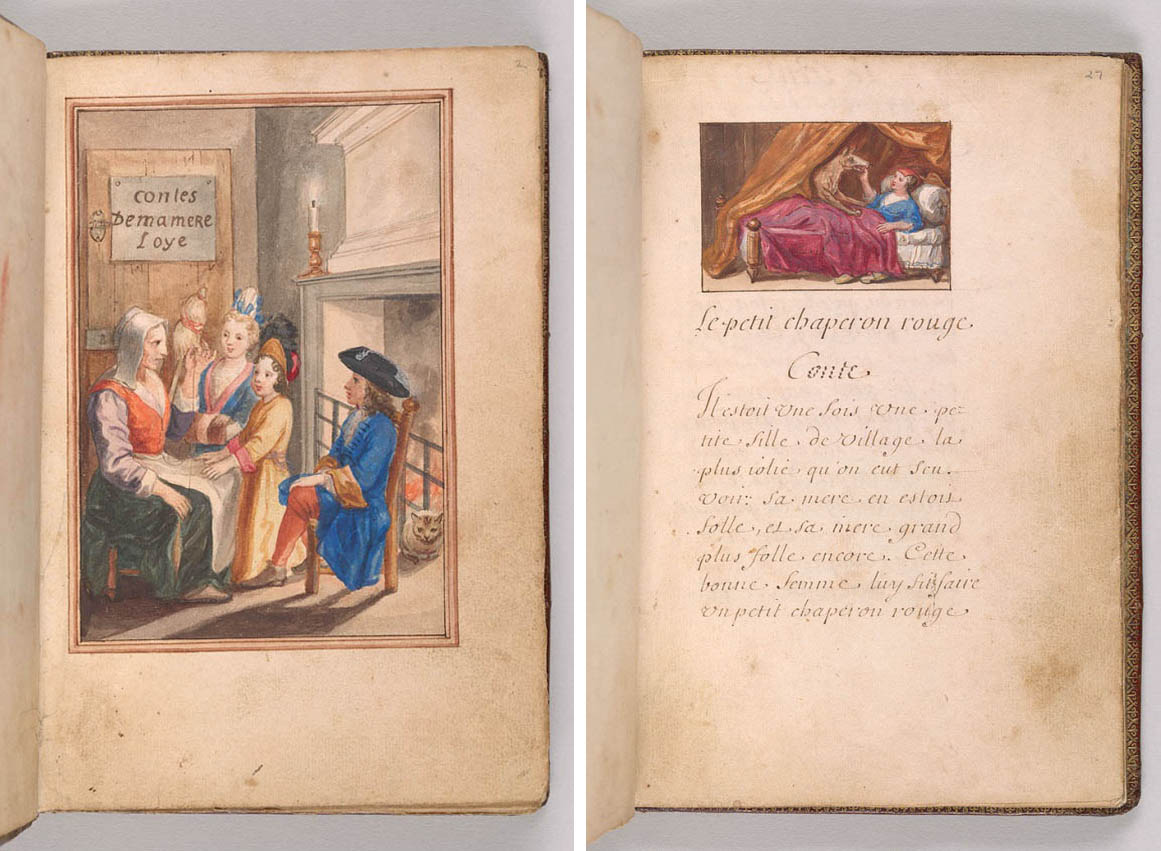 2
contes
Demamere
Loye
27
Le petit chaperon rouge
Conte
Il estoit vne fois vne pe-
tite fille de village la
plus iolie qu'on eut seu
voir: sa mere en estois
folle, et sa mere grand
plus folle encore. Cette
bonne femme luy fit faire
vn petit chaperon rouge